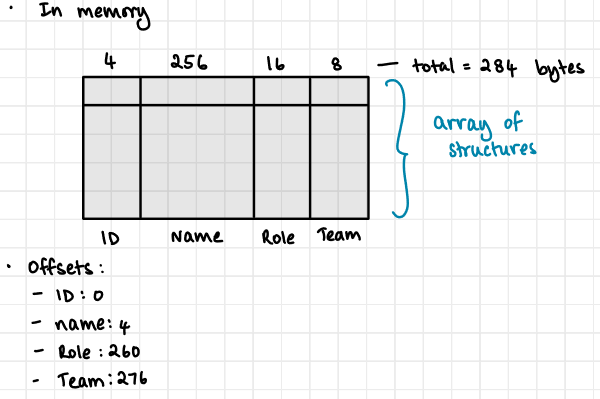 · In memory
4 256 16 8 — total = 284 bytes
array of
structures
ID Name Role Team
· Offsets:
- ID: 0
- name: 4
- Role: 260
- Team: 276